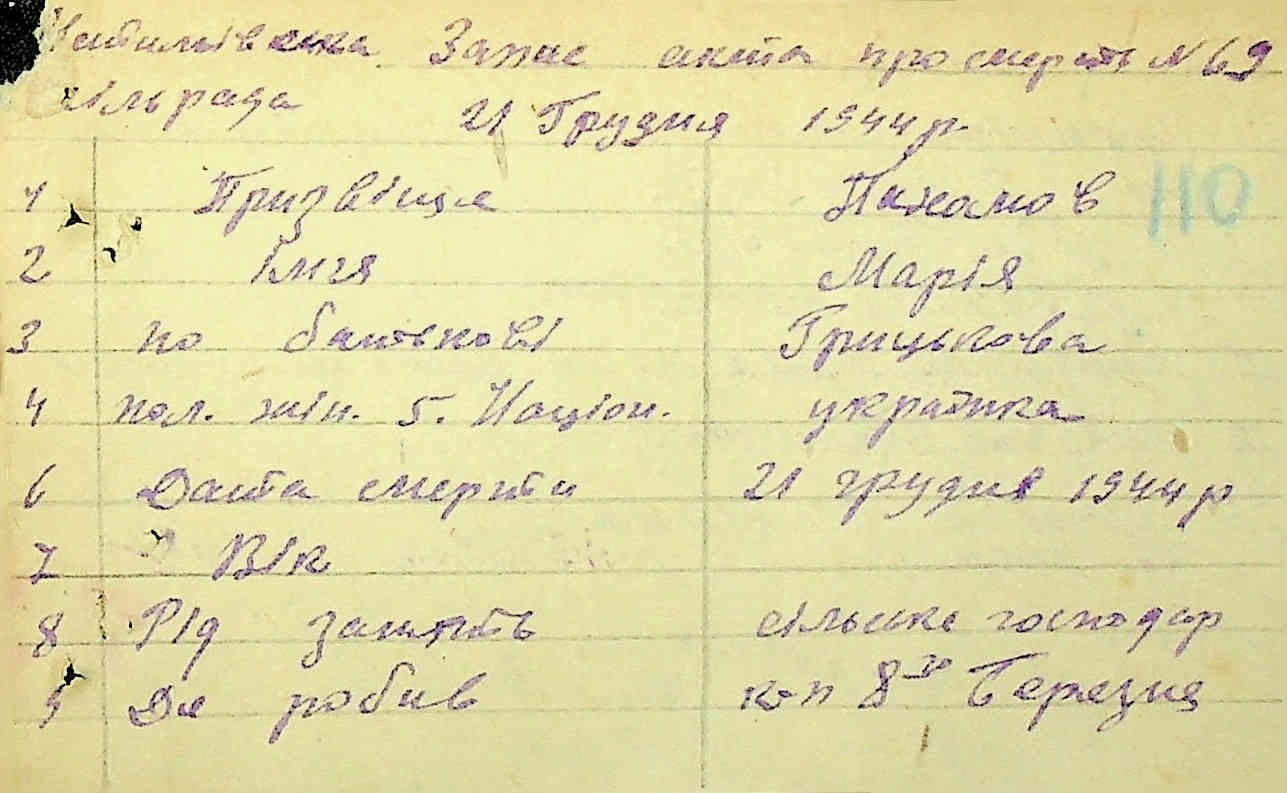 сільрада Запис акта про смерть N 69
21 Грудня 1944 р.
110
1 Призвіще Пахамов
2 імгя Марія
3 по батькові Грицькова
4 пол. жін. 5. Націон. украінка
6 Дата смерти 21 грудня 1944 р
7 Вік
8 Рід занять сільське господар
9 Де робив к-п 8го Березня